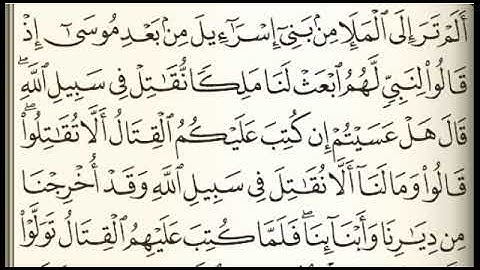 أَلَمْ تَرَ إِلَى ٱلْمَلَإِ مِنۢ بَنِىٓ إِسْرَٰٓءِيلَ مِنۢ بَعْدِ مُوسَىٰٓ إِذْ
قَالُوا۟ لِنَبِىٍّ لَّهُمُ ٱبْعَثْ لَنَا مَلِكًا نُّقَٰتِلْ فِى سَبِيلِ ٱللَّهِ ۖ
قَالَ هَلْ عَسَيْتُمْ إِن كُتِبَ عَلَيْكُمُ ٱلْقِتَالُ أَلَّا تُقَٰتِلُوا۟ ۖ
قَالُوا۟ وَمَا لَنَآ أَلَّا نُقَٰتِلَ فِى سَبِيلِ ٱللَّهِ وَقَدْ أُخْرِجْنَا
مِن دِيَٰرِنَا وَأَبْنَآئِنَا ۖ فَلَمَّا كُتِبَ عَلَيْهِمُ ٱلْقِتَالُ تَوَلَّوْا۟